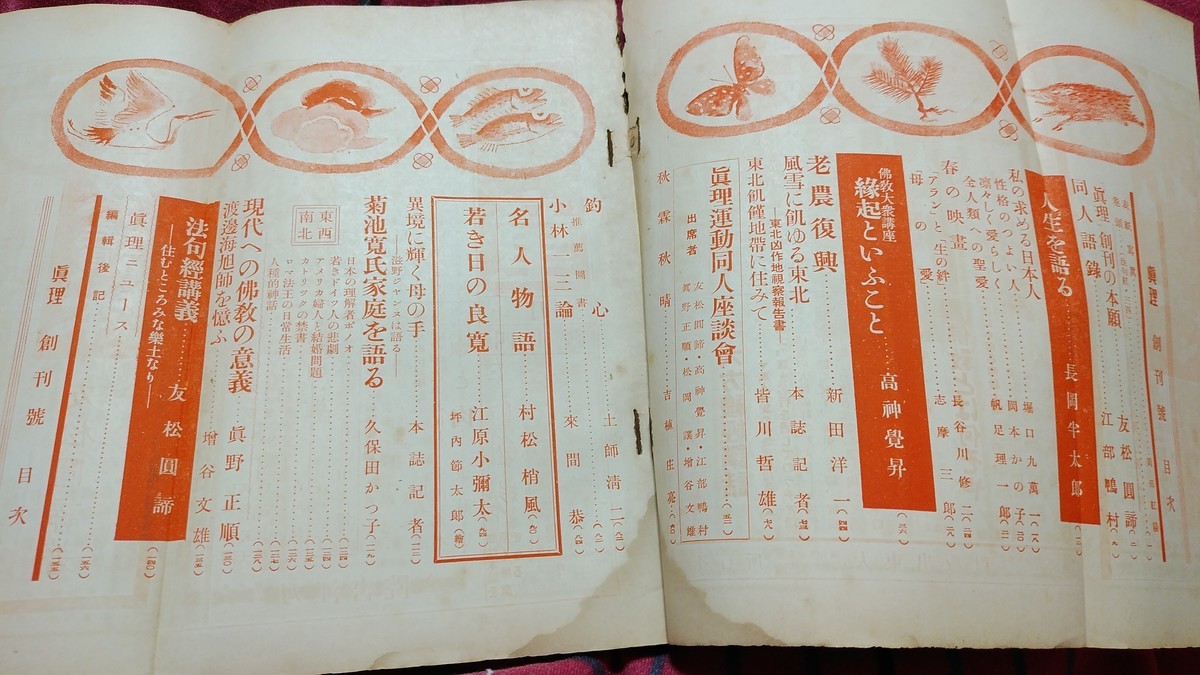 眞理 創刊號 目次
眞理創刊の本願……友松圓諦
同人語錄……江部鴨村
人生を語る……長岡半太郎
私の求める日本人
性格のつよい人……堀口九萬一
凛々しく愛らしく……岡本かの子
全人類への聖愛……帆足理一郎
春の映畫……長谷川修二
「アラン」と「生の絆」
母の愛……志摩三郎
佛敎大衆講座
緣起といふこと……高神覺昇
老農復興……新田洋一
風雪に飢ゆる東北……本誌記者
―東北凶作地視察報告書―
東北飢饉地帶に住みて……皆川哲雄
眞理運動同人座談會
出席者
友松圓諦・高神覺昇・江部鴨村
眞野正順・松岡讓・增谷文雄
秋霖秋晴……吉植庄亮
釣心……土師淸二
推薦圖書
小林一三論……來間恭
名人物語……村松梢風
若き日の良寬……江原小彌太
坪內節太郞(繪)
異境に輝く母の手……本誌記者
――滋野ジャンヌは語る――
菊池寬氏家庭を語る……久保田かつ子
東西南北
日本の理解者ボノオ
若きドイツ人の悲劇
アメリカ婦人と結婚問題
カトリックの禁書
ロマ法王の日常生活
人種的神話
現代への佛敎の意義……眞野正順
渡邊海旭師を憶ふ……增谷文雄
法句經講義……友松圓諦
―住むところみな樂土なり―
眞理ニュース
編輯後記
眞理 創刊號 目次